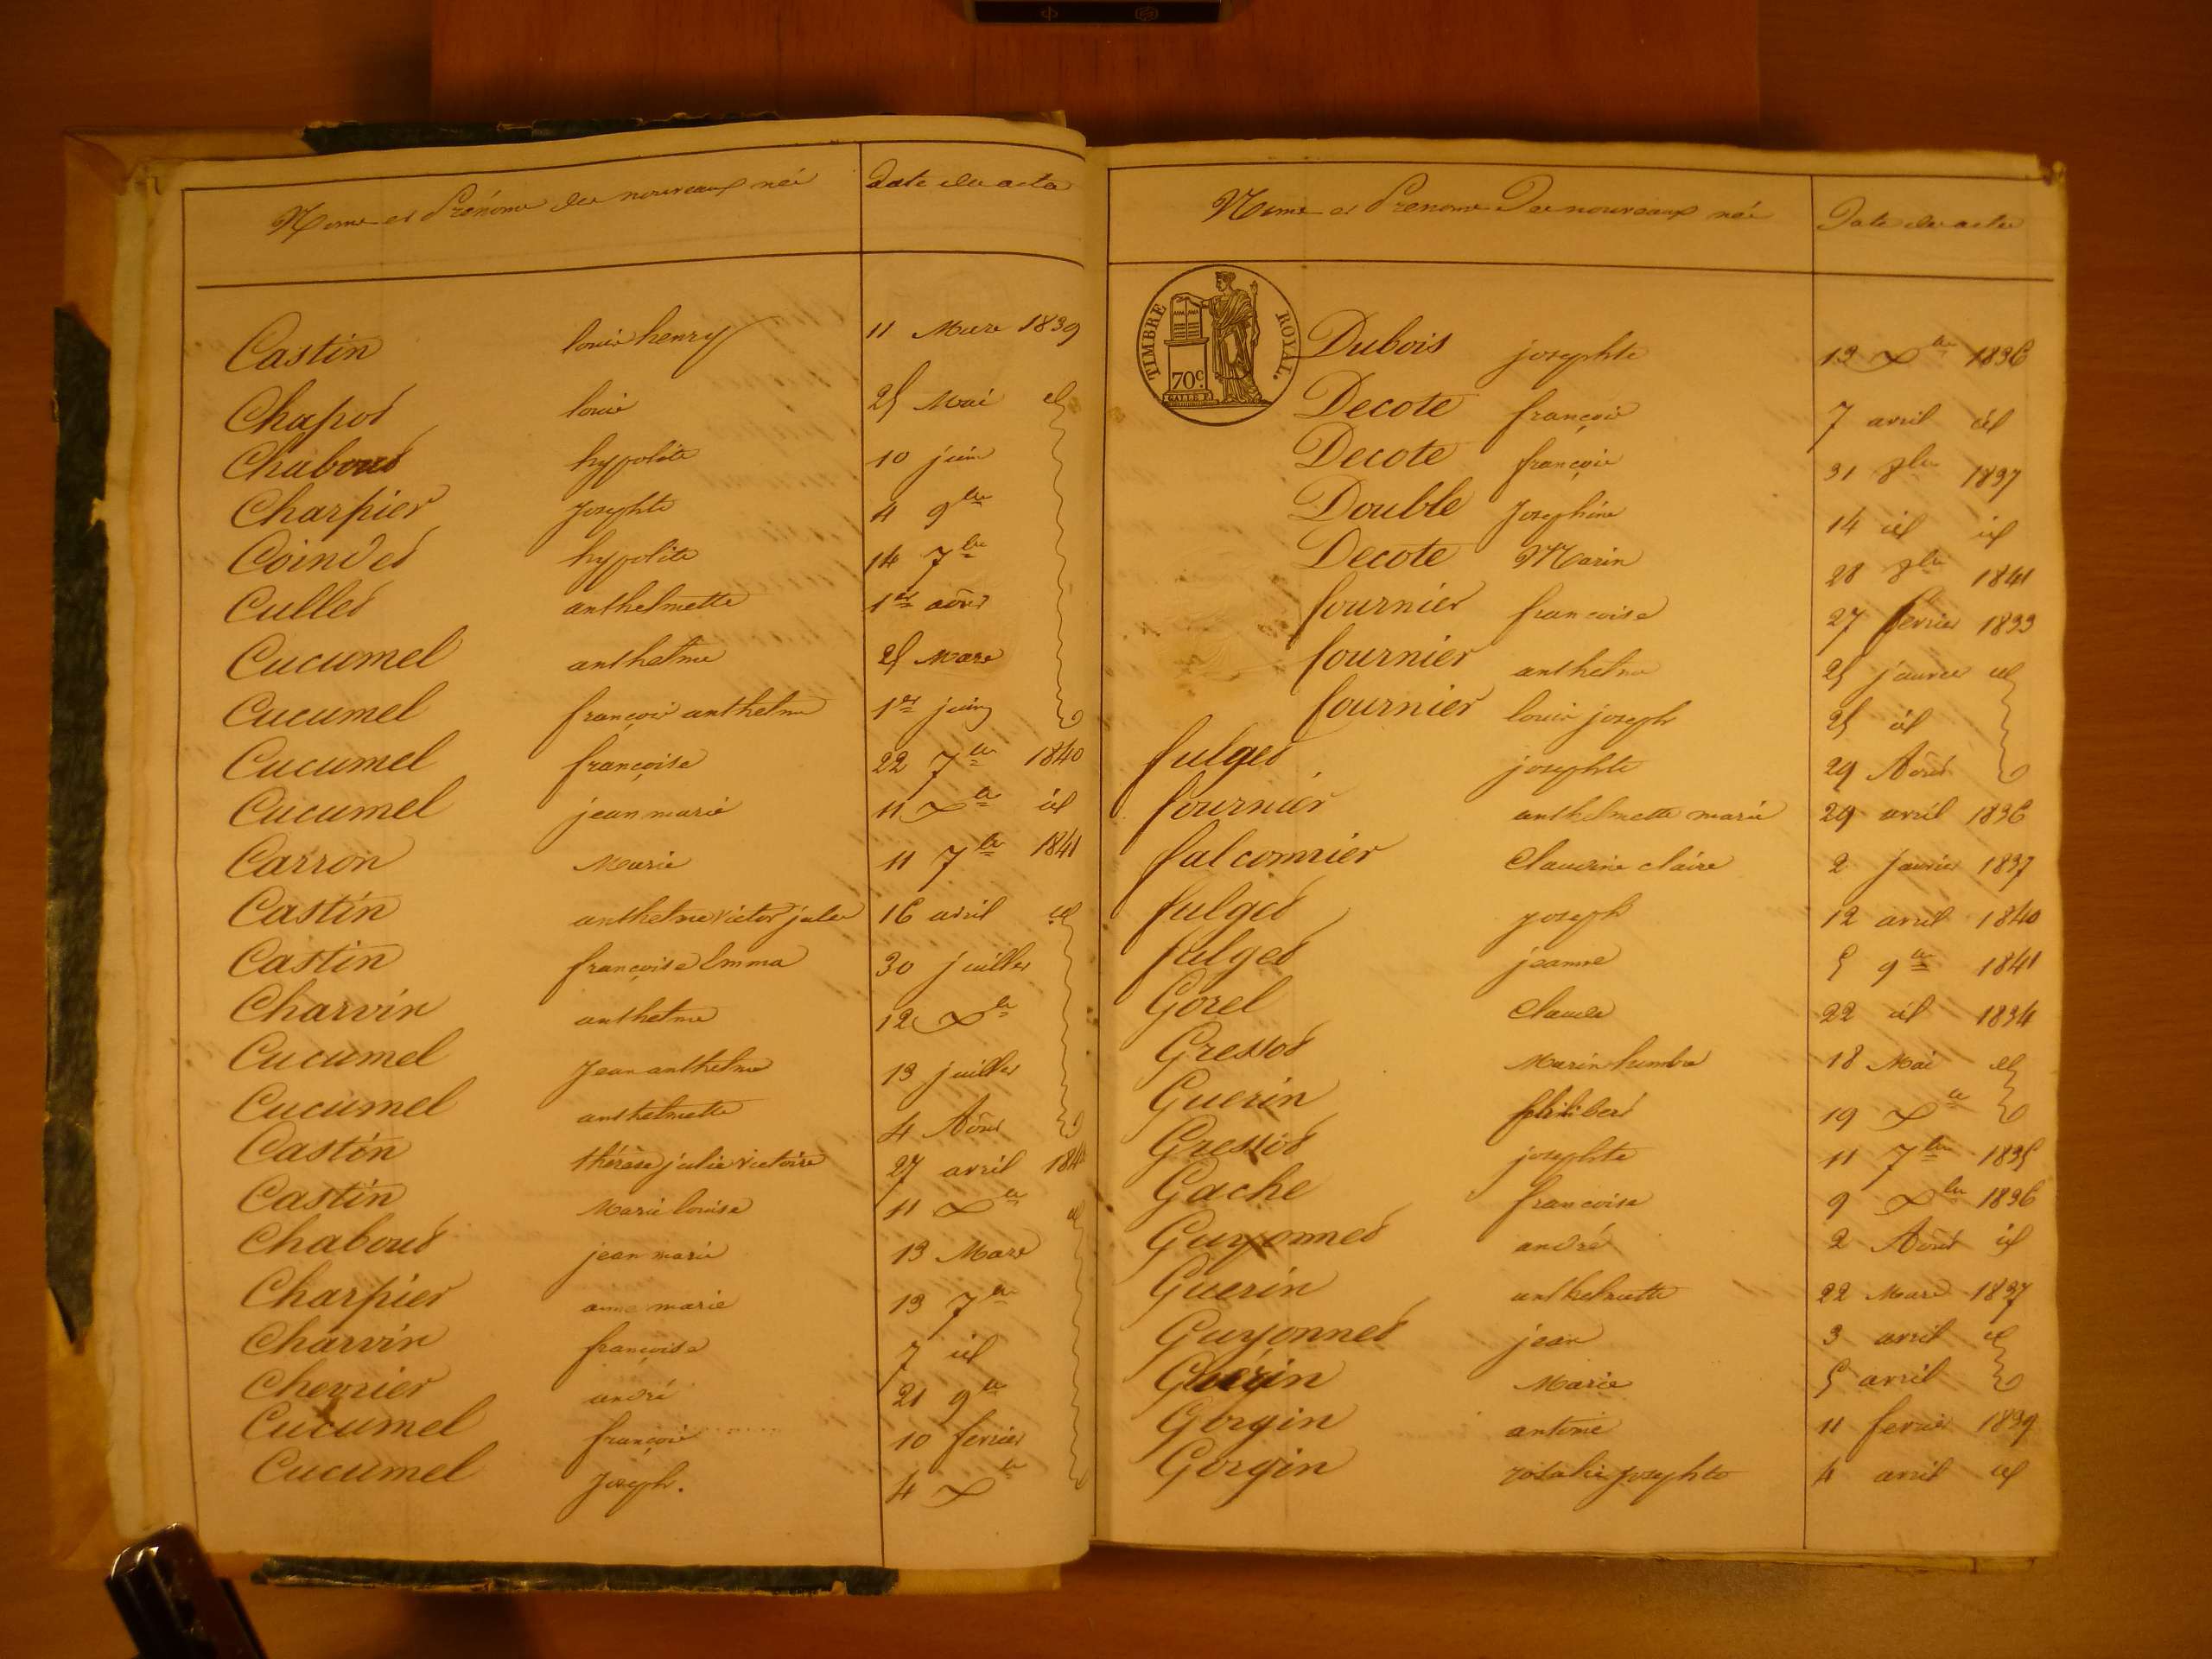 Noms et Prénoms des nouveaux nés Date des actes
Castin louis henry 11 Mars 1839
Chapot louis 25 Mai id
Chaboud hypolite 10 juin
Charpier josephte 4 9bre
Coindet hypolite 14 7bre
Cullet anthelmette 1er août
Cucumel anthelme 25 Mars
Cucumel françois anthelme 1er juin
Cucumel françoise 22 7bre 1840
Cucumel jean marie 11 Xbre id
Carron Marie 11 7bre 1841
Castin anthelme victor jules 16 avril id
Castin françoise Emma 30 juillet
Charvin anthelme 12 Xbre
Cucumel Jean anthelme 13 juillet
Cucumel anthelmette 4 Août
Castin thérèse julie victoire 27 avril
Castin Marie louise 11 Xbre id
Chaboud jean marie 13 Mars
Charpier anne marie 13 7bre
Charvin françoise 7 id
Chevrier andré 21 9bre
Cucumel françois 10 février
Cucumel joseph. 4 Xbre
Noms et Prenoms Des nouveaux nés Date des actes
TIMBRE ROYAL.
70c.
GALLE F.
Dubois josephte 13 Xbre 1836
Decote françois 7 avril id
Decote françois 31 8bre 1837
Double Josephine 14 id id
Decote Marin 28 8bre 1841
fournier francoise 27 fevrier 1833
fournier anthelme 25 janvier id
fournier louis joseph 25 id
fulget josephte 29 Août
fournier anthelmette marie 29 avril 1836
falconnier Claudine claire 2 Janvier 1837
fulget joseph 12 avril 1840
fulget jeanne 5 9bre 1841
Gorel Claude 22 id 1834
Gressot Marin humbe 18 Mai id
Guerin philibert 19 Xbre
Gressot josephte 11 7bre 1835
Gache francoise 9 Xbre 1836
Guyonnet andré 2 Août id
Guerin anthelmette 22 Mars 1837
Guyonnet jean 3 avril id
Guérin Marie 5 avril
Gorgin antoine 11 fevrier 1839
Gorgin rosalie josephte 4 avril id